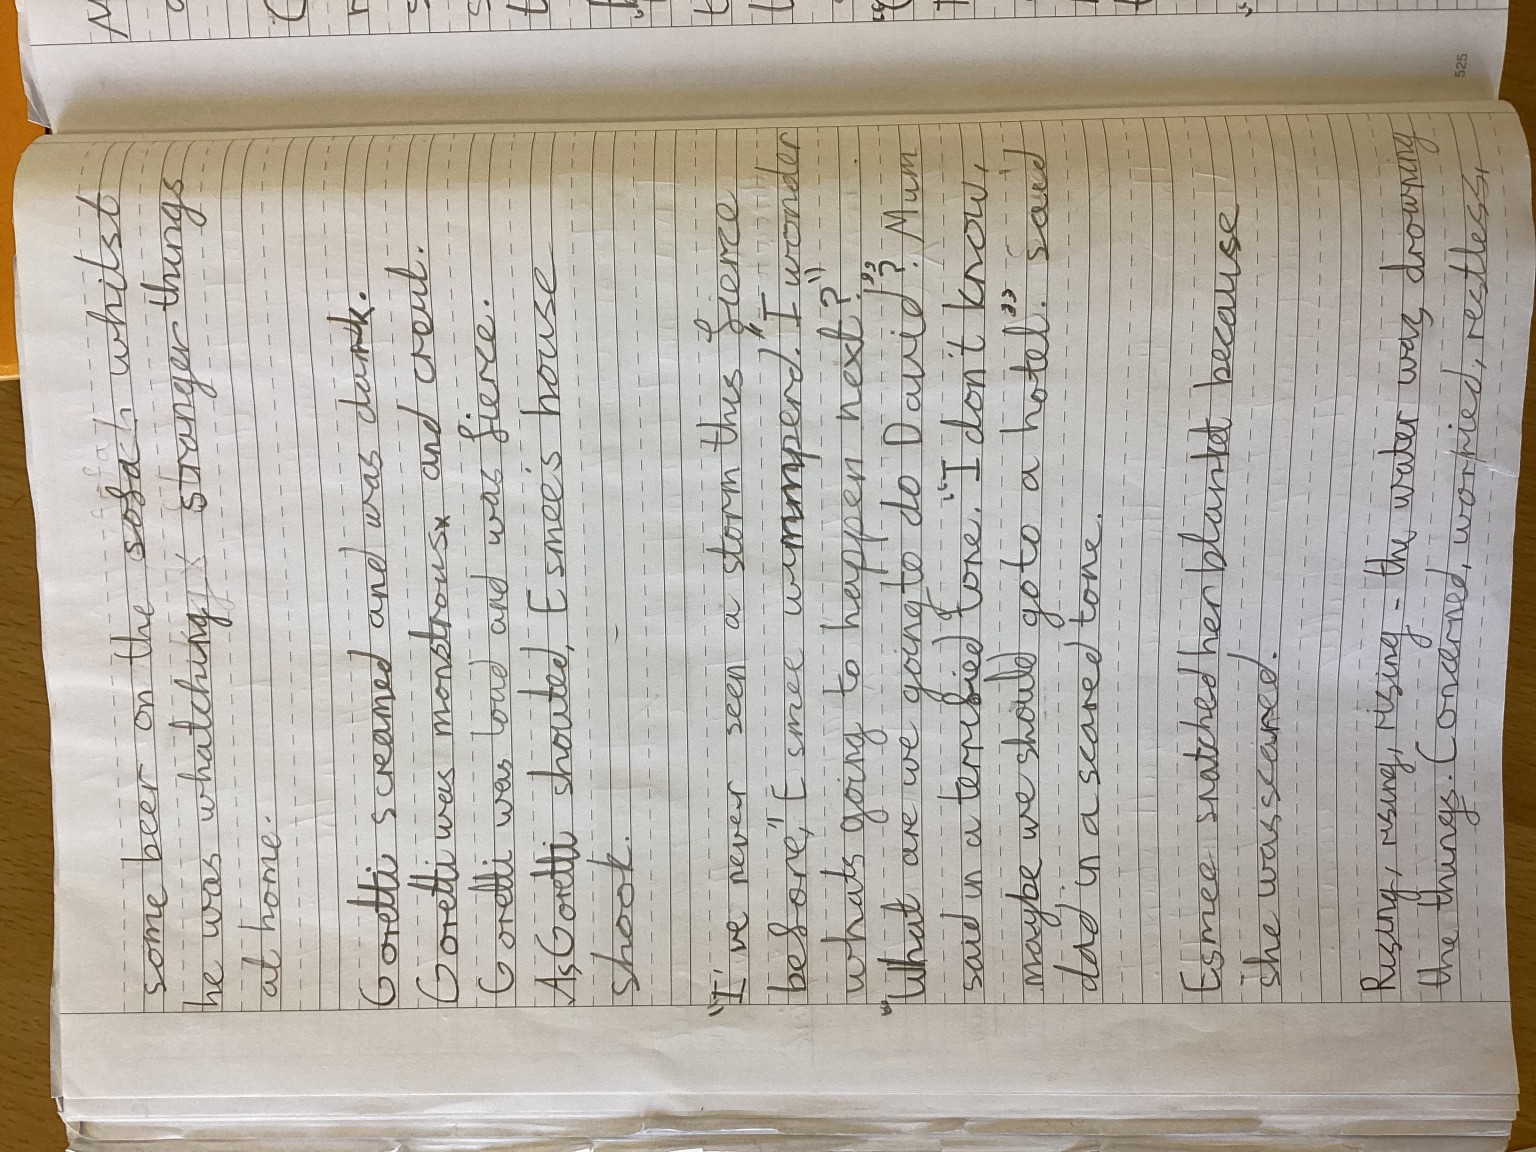 some beer on the sofach whilst
he was whatching stranger things
at home.
Goretti screamed and was dark.
Goretti was monstrous and creul.
Goretti was loud and was fierce.
As Goretti shouted, Esmee's house
shook.
"I've never seen a storm this fierce
before," Esmee wimmperd. "I wonder
whats going to happen next?"
"What are we going to do David?" Mum
said in a terrified tone. "I don't know,
maybe we should go to a hotel." said
dad in a scared tone.
Esmee snatched her blanket because
she was scared.
Rising, rising, rising - the water was drowning
the things. Concerned, worried, restless,
525